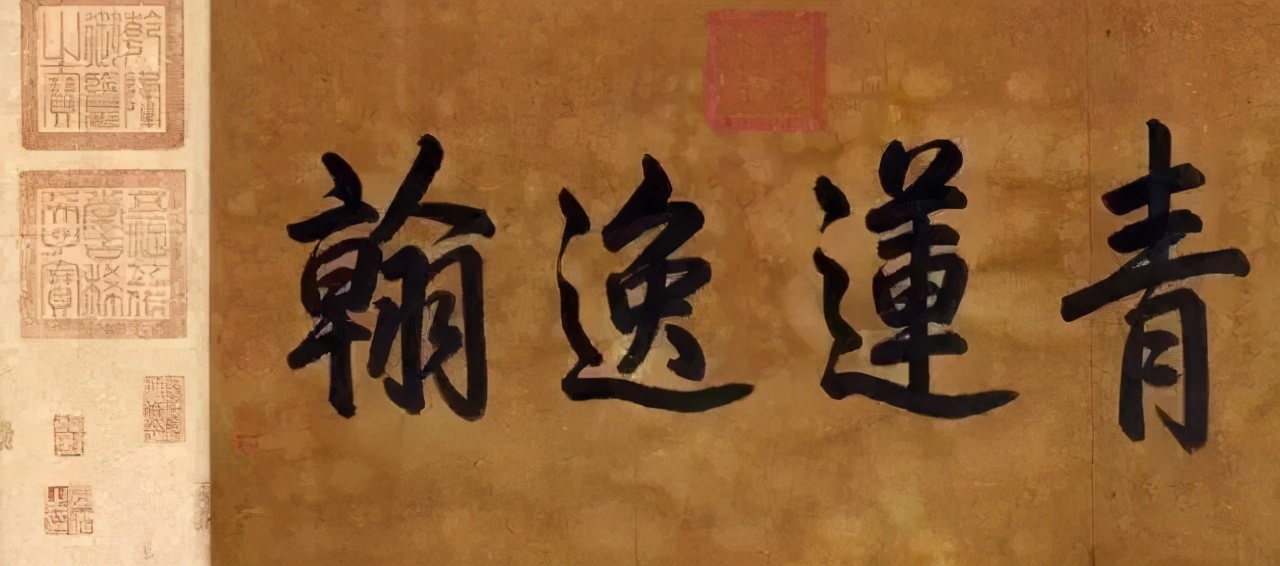 青蓮逸翰
乾隆御覽之寶
五福五代堂古稀天子寶